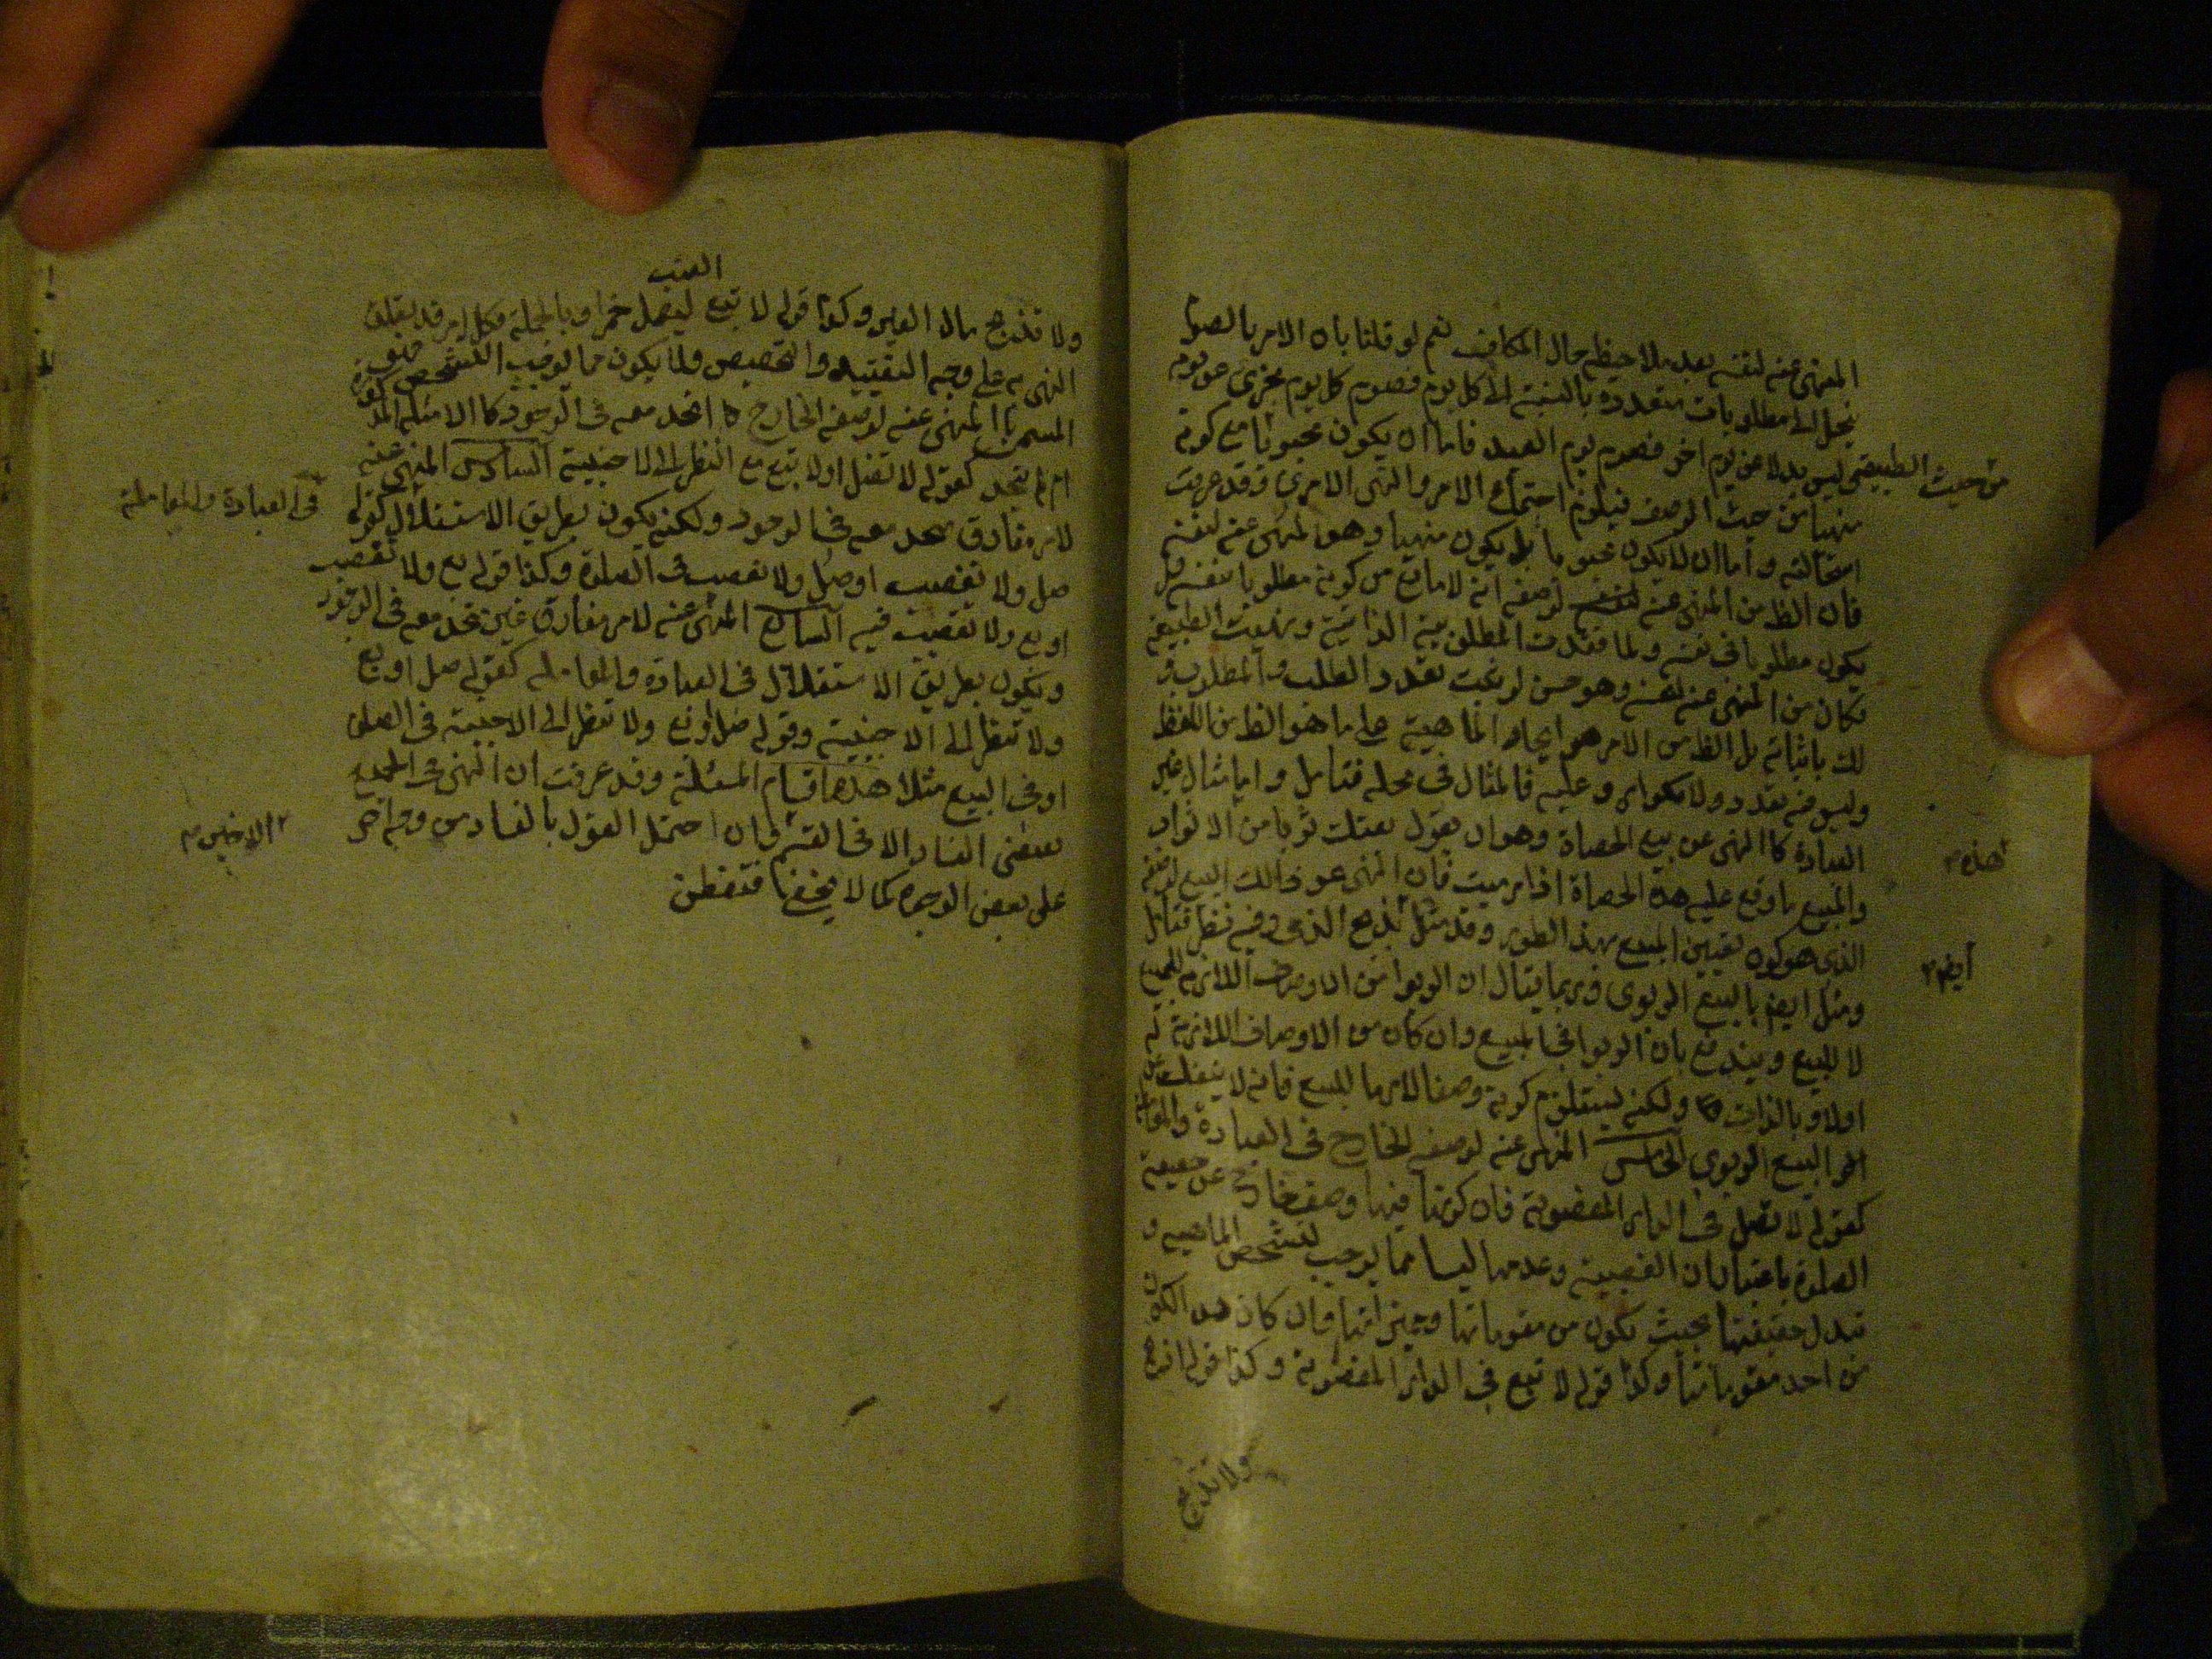 المنهى عنه لنفسه بعد ملاحيظه حال المكلف نعم لو قلنا بان الامر بالصوم
ينحل الى مطلوبات متعدده بالنسبة الى كل يوم فصوم كل يوم يجزى عن يوم
ليس بدلا عن يوم اخر فصوم يوم العيد فاما ان يكون محبوبا مع كونه
من حيث الطبيعى
منهيا من حيث الوصف فيلزم اجتماع الامر والنهى الامرى وقد عرفت
استحالته واما ان لا يكون محبوبا بل يكون منهيا وهو المنهى عنه لنفسه
فان الظ من المنهى عنه لوصفه انه لا مانع من كونه مطلوبا بنفسه
يكون مطلوبا فى نفسه ولما فقدت المطلوبية الذاتية
فكان من المنهى عنه لنفسه وهو حسن لو ثبت تعدد الطلب والمطلوب و
لك باثباته بل الظ من الامر هو ايجاد الماهية على ما هو الظ من اللفظ
وليس فيه تعدد ولا تكرار وعليه فالمثال فى محله فتامل واما مثال غير
العبادة كالنهى عن بيع الحصاة وهو ان يقول بعتك ثوبا من الاثواب
هذه
والمبيع ما وقع عليه هذه الحصاة اذا رميت فان المنهى عن ذالك البيع لوصفه
الذى هو كون تعيين المبيع بهذا الطور وقد مثل بذبح الذمى وفيه نظر فتامل
ايضا
ومثل ايضا بالبيع الربوى وربما يقال ان الربوا من الاوصاف اللازمه للمبيع
لا للبيع ويندفع بان الربوا فى المبيع وان كان من الاوصاف اللازمة له
اولا وبالذات ولكنه يستلزم كونه وصفا لازما للبيع فانه لا ينفك عن
البيع الربوى الخامس المنهى عنه لوصفه الخارج فى العبادة والمعاملة
كقوله لا تصل فى الدار المغصوبة فان كونها فيها وصف خارج عن حقيقة
الصلوة باعتبار ان الغصبية وعدمها ليسا مما يوجب تشخص الماهيه و
تبدل حقيقتها بحيث يكون من مقوماتها ومميزاتها وان كان هذا الكون
من احد مقوماتها وكذا قوله لا تبع فى الدار المغصوبة وكذا قوله اذبح
ولا تذبح
العنب
ولا تذبح مال الغير وكذا قوله لا تبع ليعمل خمرا وبالجملة فكل امر قد يتعلق
النهى به على وجه التقييد والتخصيص ولا يكون مما يوجب التشخص فهو
المسمى بالمنهى عنه لوصفه الخارج اتحد معه فى الوجود كالامثله المذكورة
ام لم يتحد كقوله لا تصل اولا تبع مع النظر الى الاجنبية السادس المنهى عنه
فى العبادة والمعاملة
لامر مفارق متحد معه فى الوجود ولكنه يكون بطريق الاستقلال كقوله
صل ولا تغصب اوصل ولا تغصب فى الصلوة وكذا قوله بع ولا تغصب
اوبع ولا تغصب فيه السابع المنهى عنه لامر مفارق غير متحد معه فى الوجود
ويكون بطريق الاستقلال فى العبادة والمعامله كقوله صل اوبع
ولا تنظر الى الاجنبية وقوله صل اوبع ولا تنظر الى الاجنبية فى الصلوة
اوفى البيع مثلا هذه اقسام المسئلة وقد عرفت ان النهى فى الجميع
يقتضى الفساد الا فى القسم وان احتمل القول بالفساد من وجه اخر
الاخير
على بعض الوجوه كما لا يخفى فتفطن